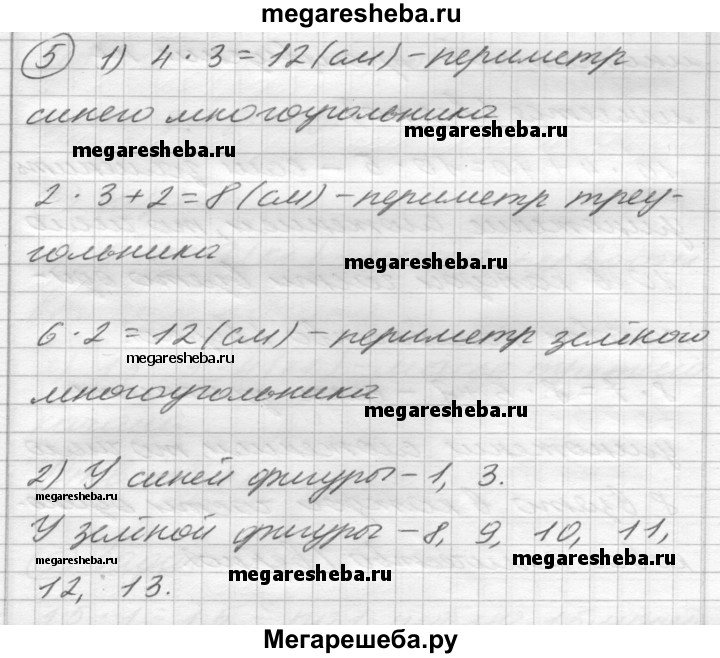 megaresheba.ru
5 1) 4 · 3 = 12 (см) – периметр
синего многоугольника
megaresheba.ru
megaresheba.ru
2 · 3 + 2 = 8 (см) – периметр треу-
гольника
megaresheba.ru
6 · 2 = 12 (см) – периметр зелёного
megaresheba.ru
многоугольника
megaresheba.ru
2) У синей фигуры – 1, 3.
megaresheba.ru
У зелёной фигуры – 8, 9, 10, 11,
megaresheba.ru
megaresheba.ru
megaresheba.ru
12, 13.
Мегарешеба.ру